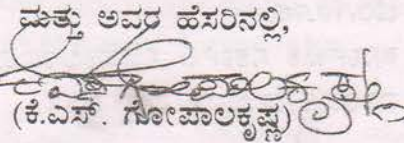 ಮತ್ತು ಅವರ ಹೆಸರಿನಲ್ಲಿ,
(ಕೆ.ಎಸ್. ಗೋಪಾಲಕೃಷ್ಣ)